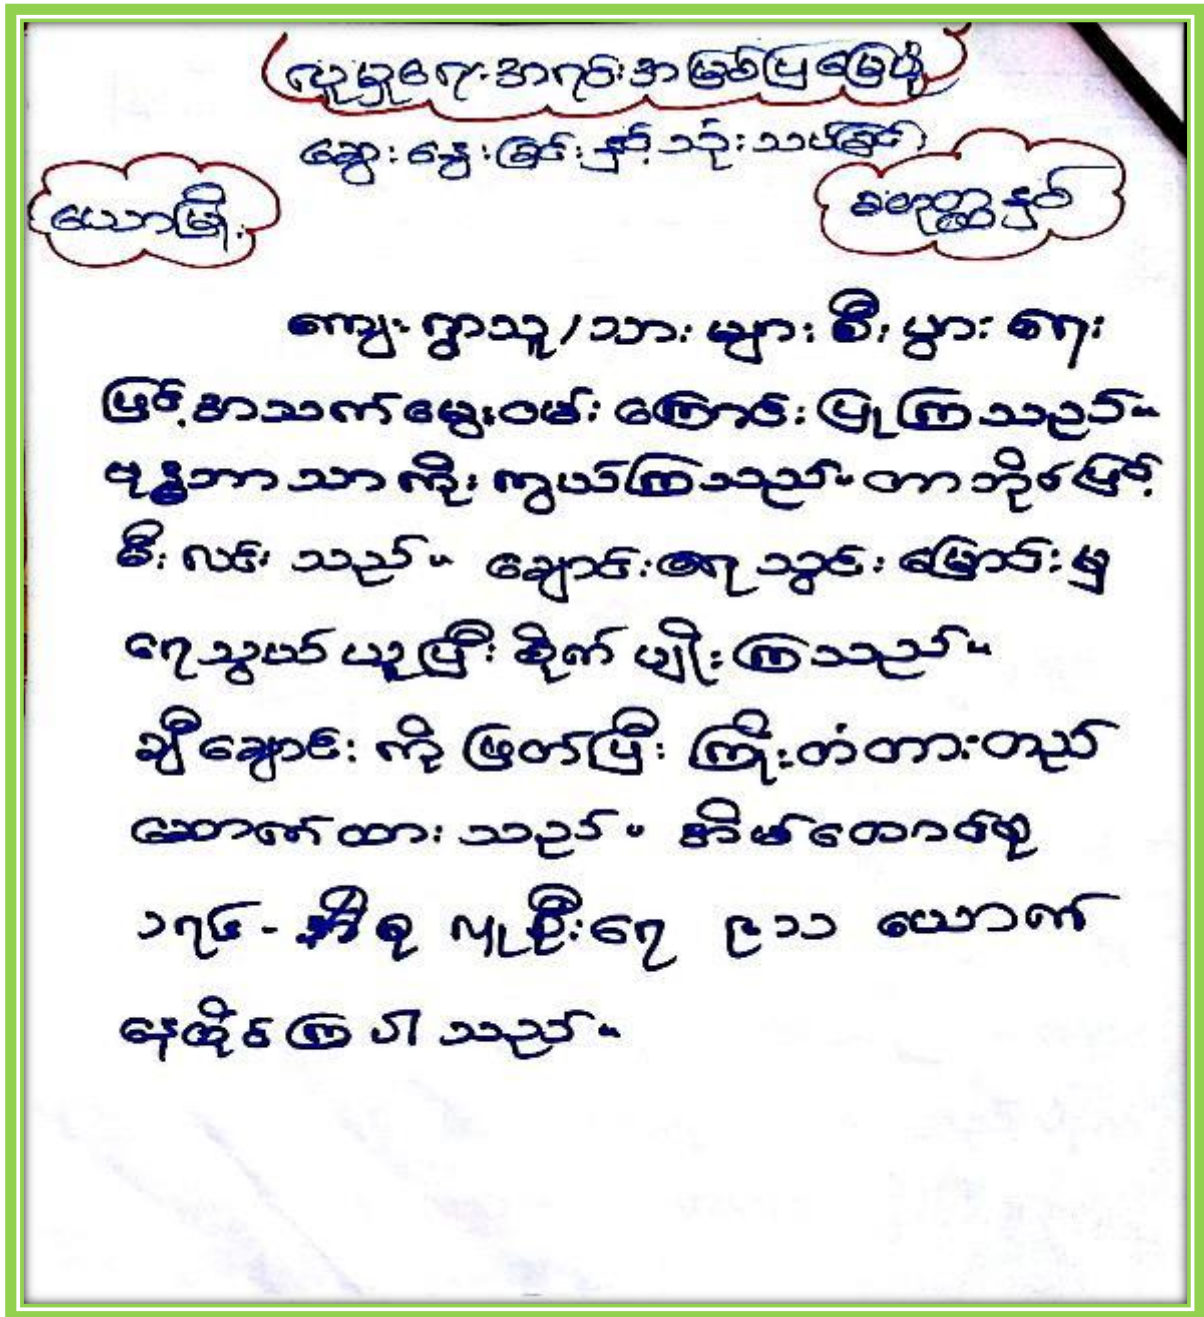 လူမှုရေးအရင်းအမြစ်ပြမြေပုံ
ဆွေးနွေးခြင်းနှင့်သုံးသပ်ခြင်း
ယောမြို့
စတုတ္ထနှစ်
ကျေးရွာသူ/သားများစီးပွားရေး
ဖြင့်အသက်မွေးဝမ်းကြောင်းပြုကြသည်။
ဗုဒ္ဓဘာသာကိုးကွယ်ကြသည်။တာဘိုင်ဖြင့်
မီးလင်းသည်။ ချောင်းရေသွင်းမြောင်းမှ
ရေသွယ်ယူပြီးစိုက်ပျိုးကြသည်။
ချီချောင်းကိုဖြတ်ပြီးကြိုးတံတားတည်
ဆောက်ထားသည်။ အိမ်ထောင်စု
၁၇၆-အိစု လူဦးရေ ၉၁၁ ယောက်
နေထိုင်ကြပါသည်။